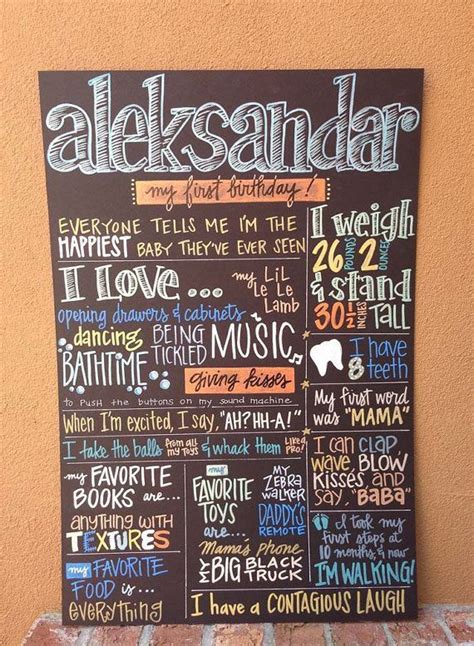 aleksandar
my first birthday!
EVERYONE TELLS ME I'M THE
HAPPIEST BABY THEY'VE EVER SEEN
I LOVE...
my LiL
Le Le
Lamb
opening drawers & cabinets
dancing
BEING
TICKLED
MUSIC
BATHTIME
giving kisses
to PUSH the BUTTONS on my SOUND MACHINE
When I'm excited, I say, "AH? HH-A!"
I take the balls from all my toys & whack them like a pro!
my
FAVORITE
BOOKS
are...
anything with
TEXTURES
my FAVORITE
FOOD is...
everything
my
FAVORITE
TOYS
are...
MY
ZEBRA
WALKER
DADDY'S
REMOTE
Mama's phone
& MY BIG BLACK TRUCK
I have a CONTAGIOUS LAUGH
I weigh
26 POUNDS 2 OUNCES
& stand
30 1/2 INCHES
TALL
I have
8 teeth
My first word
was "MAMA"
I can CLAP,
wave, BLOW
KISSES, and
say, "BABA"
I took my
first steps at
10 months, & now
I'M WALKING!